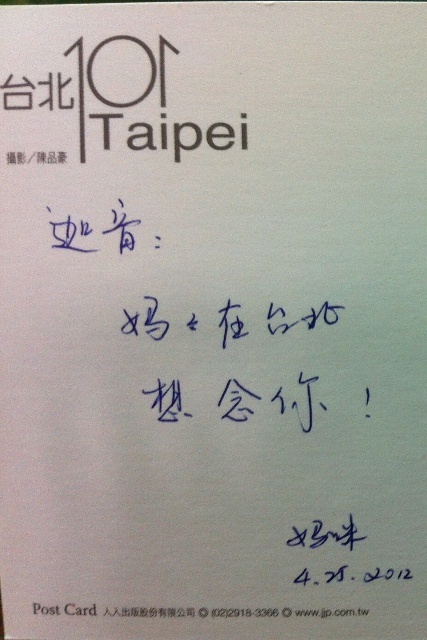 台北101
Taipei
攝影／陳品豪
迦音：
妈々在台北
想念你！
妈咪
4.25.2012
Post Card 人人出版股份有限公司 ◎ (02)2918-3366 ◎ www.jjp.com.tw